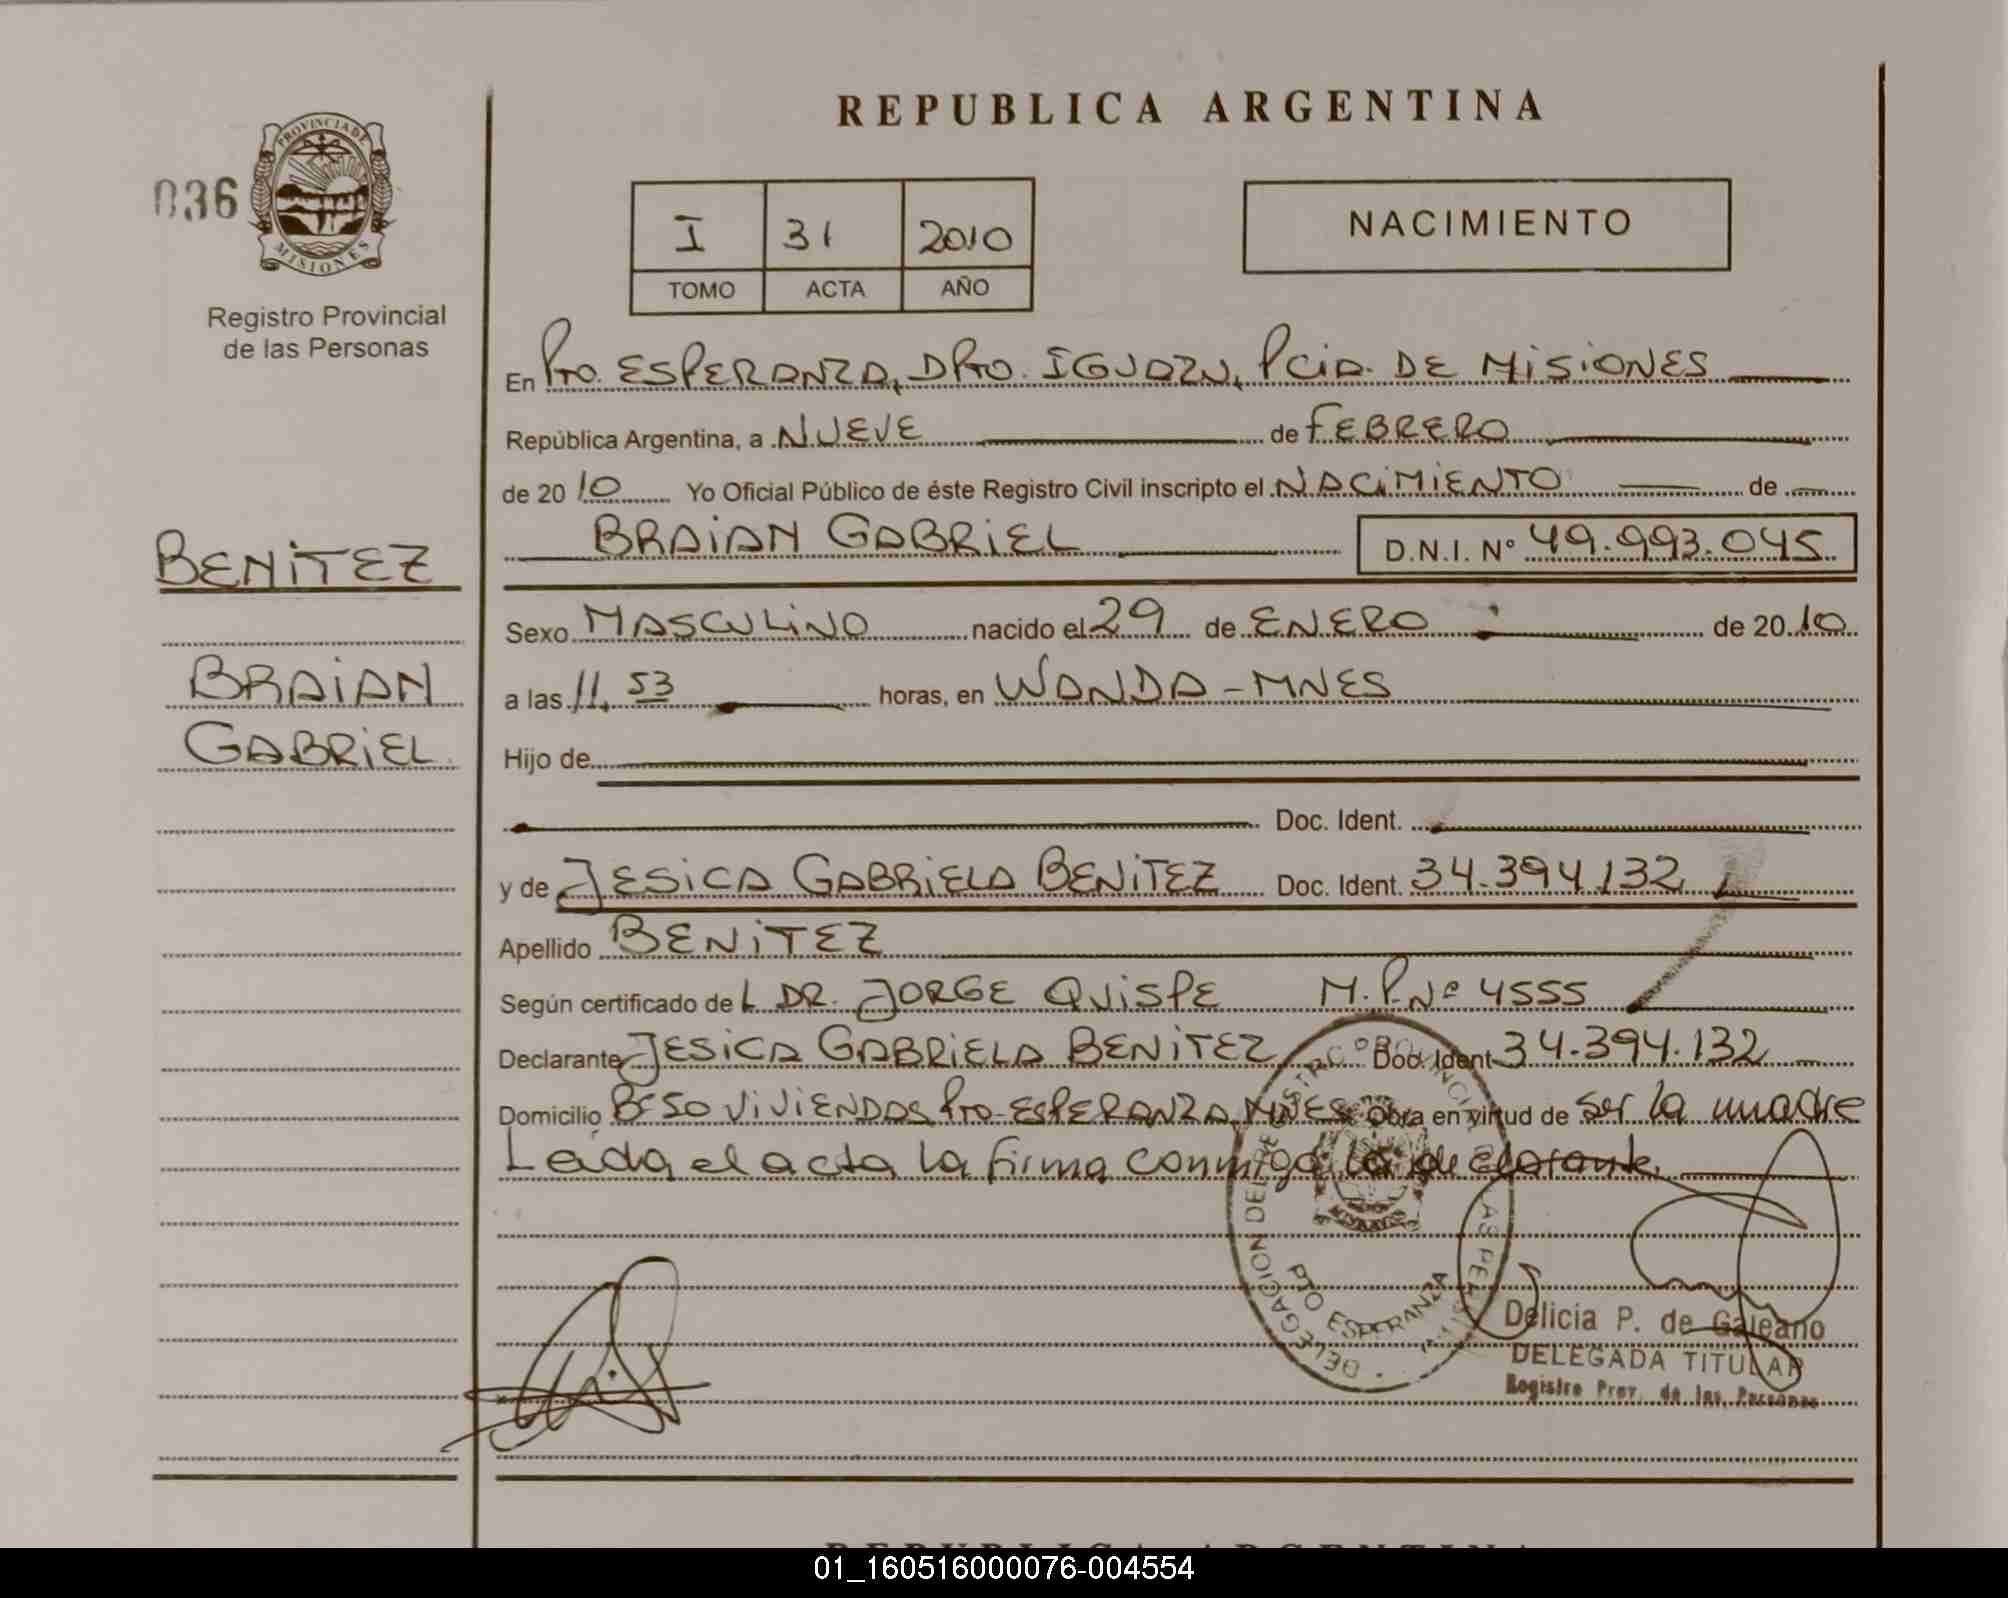 REPUBLICA ARGENTINA
036
PROVINCIA DE
MISIONES
Registro Provincial
de las Personas
I 31 2010
TOMO ACTA AÑO
NACIMIENTO
En Pto. ESPERANZA, DPto. IGUAZU, PCiA. DE MiSiONES
República Argentina, a NUEVE de FEBRERO
de 2010 Yo Oficial Público de éste Registro Civil inscripto el NACiMiENTO de
BRAiAN GABRiEL D.N.I. Nº 49.993.045
BENiTEZ
BRAiAN
GABRiEL
Sexo MASCULiNO nacido el 29 de ENERO de 2010
a las 11,53 horas, en WANDA - MNES
Hijo de
Doc. Ident.
y de JESiCA GABRiELA BENiTEZ Doc. Ident. 34.394.132
Apellido BENiTEZ
Según certificado del DR. JORGE QUiSPE M.P.Nº 4555
Declarante JESiCA GABRiELA BENiTEZ Doc. Ident 34.394.132
Domicilio Bº 50 ViViENDAS Pto-ESPERANZA, MNES Obra en virtud de ser la madre
Leida el acta la firma conmigo la declarante.
PTO ESPERANZA
Delicia P. de Galeano
DELEGADA TITULAR
Registro Prov. de las Personas
REPUBLICA ARGENTINA
01_160516000076-004554